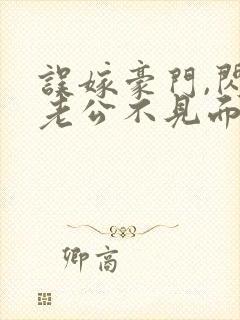 誤嫁豪門,閃
老公不見而
卿高